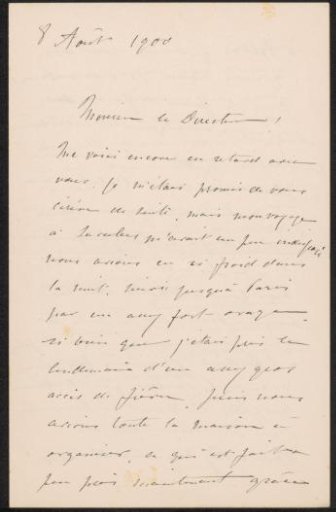 8 Août 1900
Monsieur le Directeur!
Me voici encore en retard avec
vous. Je m'étais promis de vous
écrire de suite, mais mon voyage
à m'avait un peu
nous avions eu si froid dans
la nuit, jusqu'à Paris
par un assez fort orage,
si bien que j'étais pris le
lendemain d'un assez gros
accès de fièvre. Puis nous
avions toute la maison à
organiser, ce qui est fait à
peu près maintenant grâce